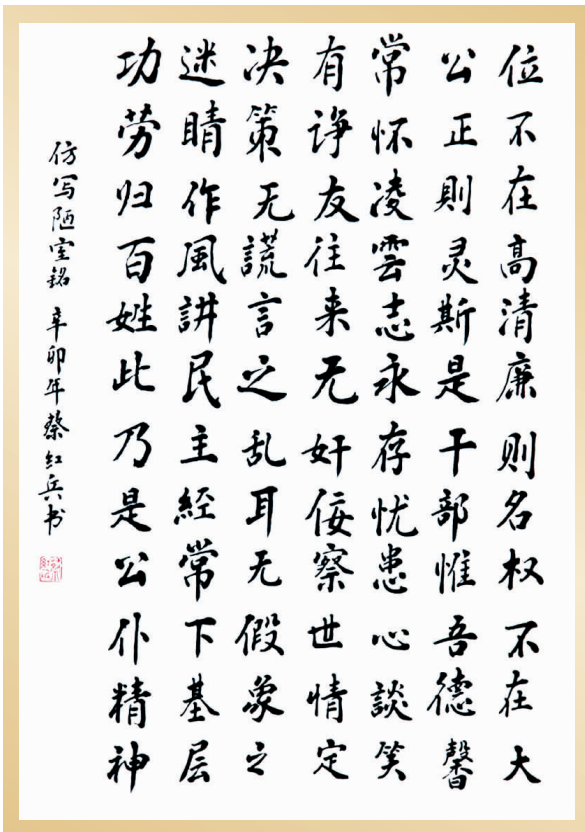 位不在高清廉则名权不在大
公正則灵斯是干部惟吾德馨
常怀凌雲志永存忧患心談笑
有诤友往来无奸佞察世情定
决策无謊言之乱耳无假象之
迷睛作風講民主經常下基层
功劳归百姓此乃是公仆精神
仿写陋室铭 辛卯年蔡红兵书